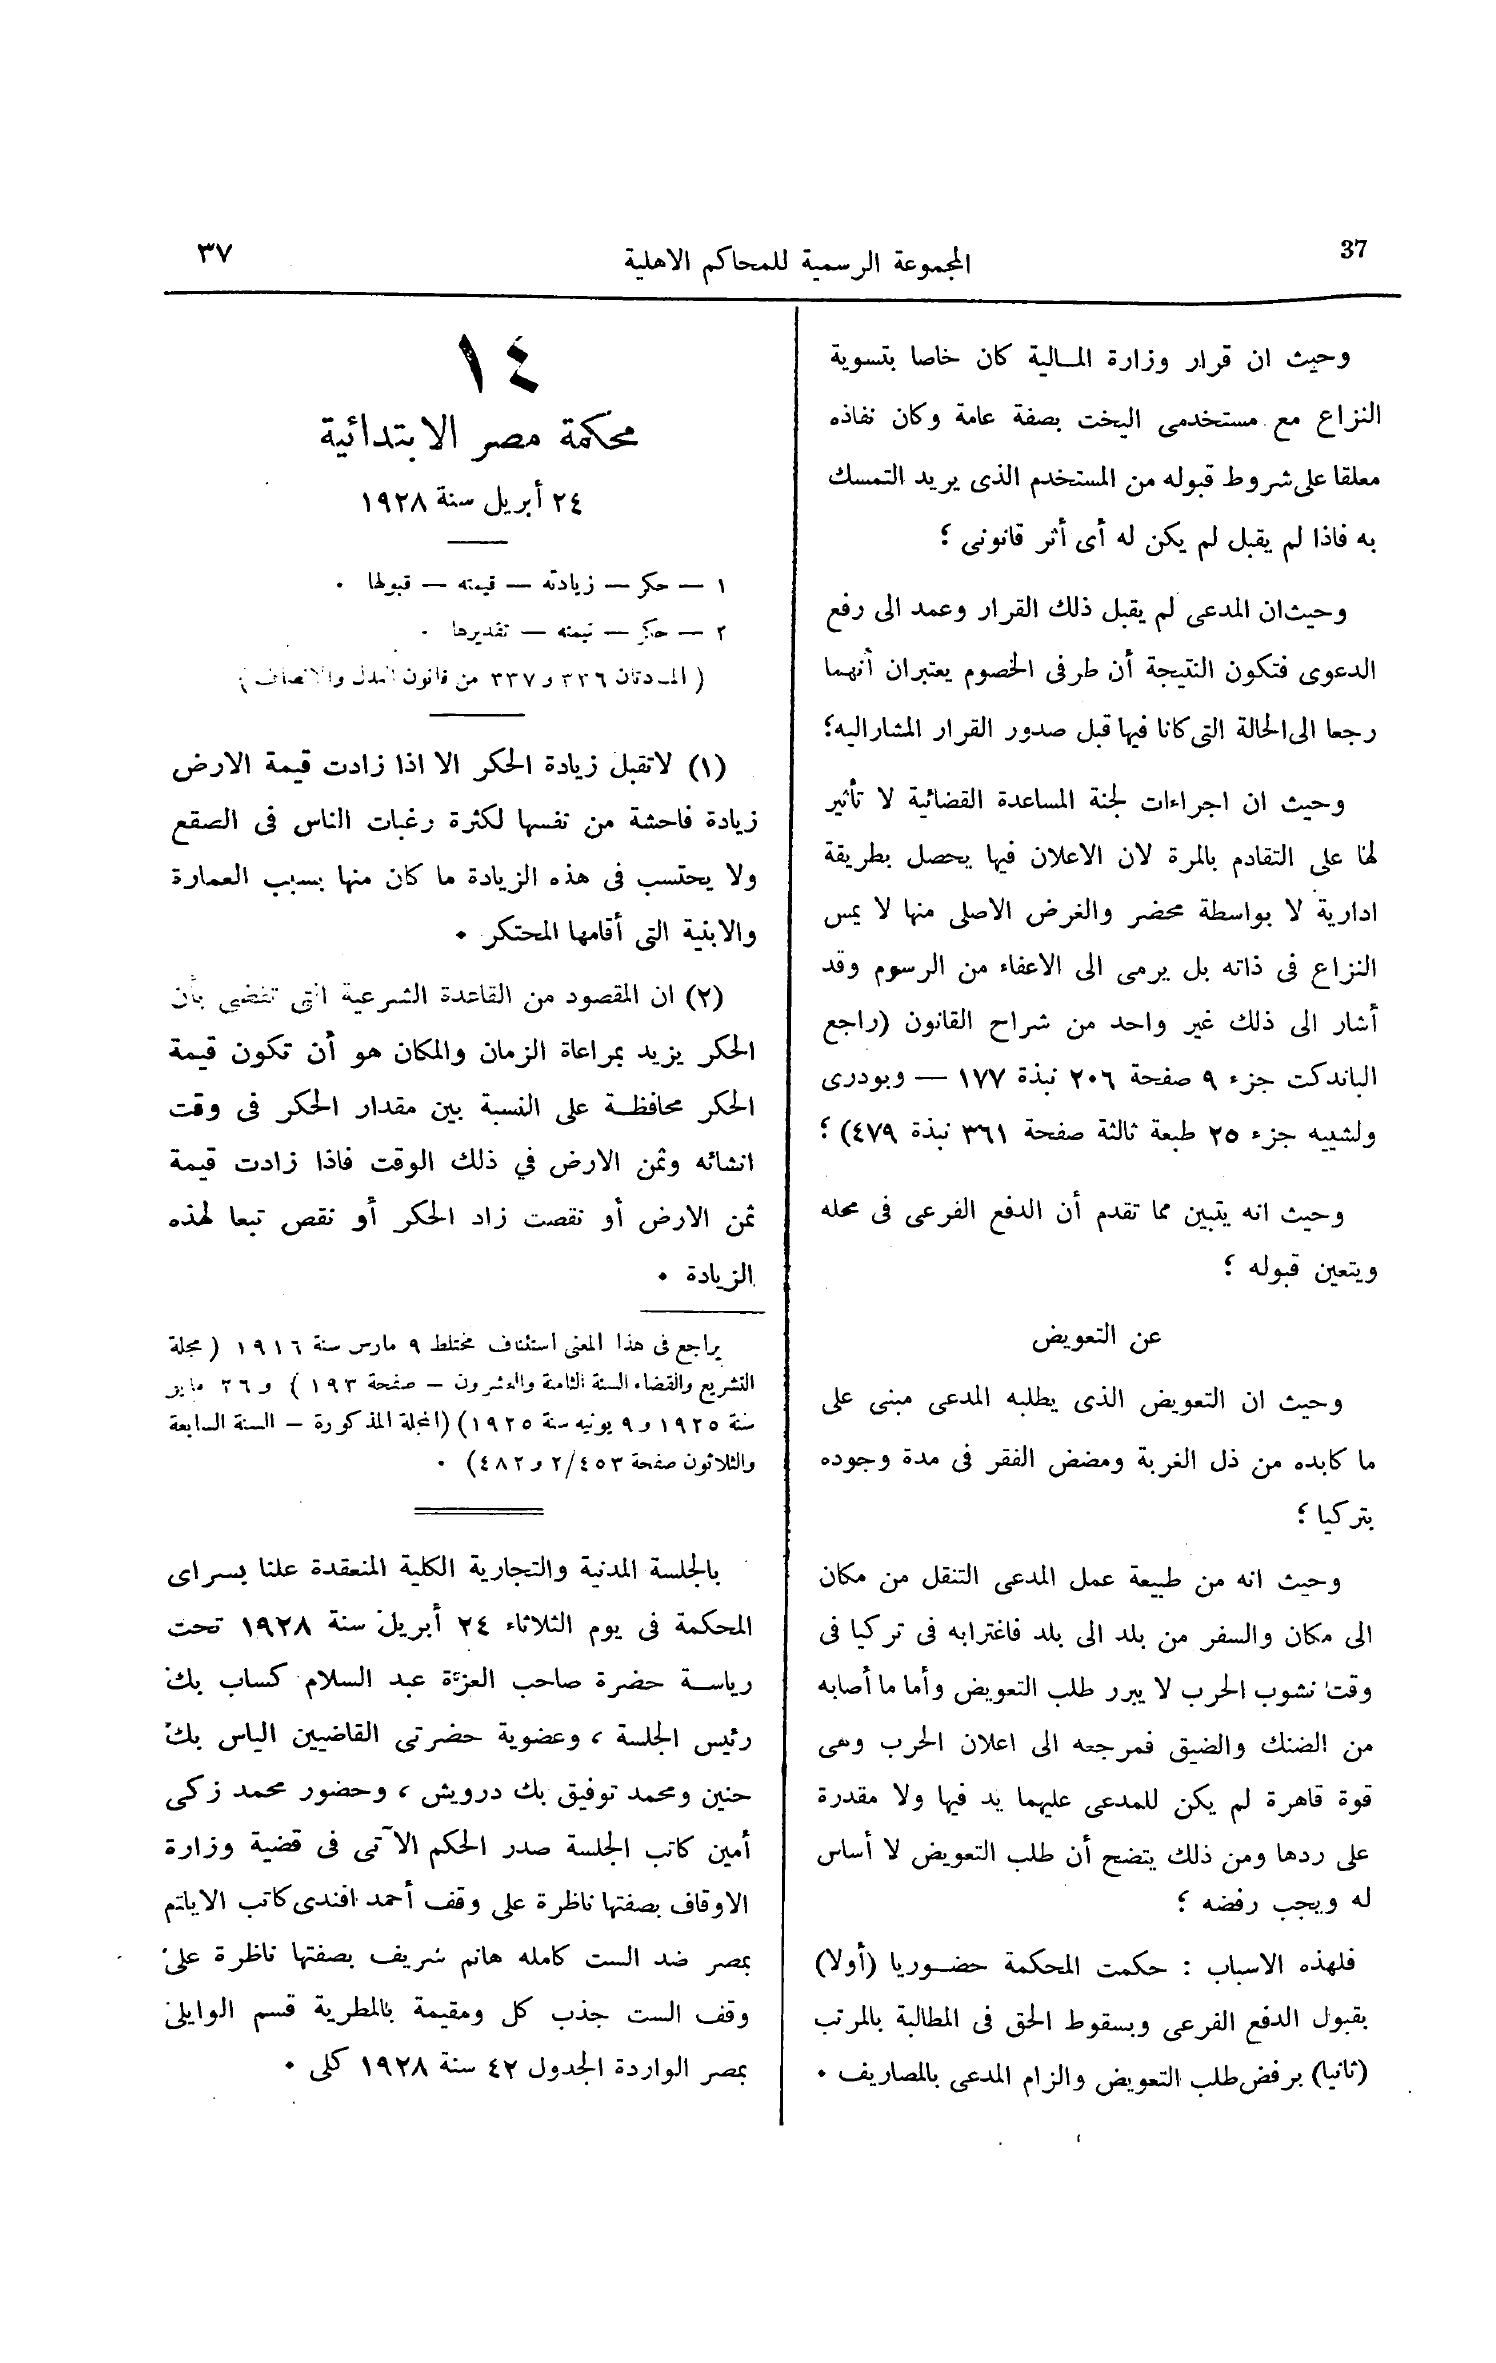 37
المجموعة الرسمية للمحاكم الاهلية
٣٧
وحيث ان قرار وزارة المالية كان خاصا بتسوية
النزاع مع مستخدمى اليخت بصفة عامة وكان نفاذه
معلقا على شروط قبوله من المستخدم الذى يريد التمسك
به فاذا لم يقبل لم يكن له أى أثر قانونى ؛
وحيث ان المدعى لم يقبل ذلك القرار وعمد الى رفع
الدعوى فتكون النتيجة أن طرفى الخصوم يعتبران أنهما
رجعا الى الحالة التى كانا فيها قبل صدور القرار المشار اليه ؛
وحيث ان اجراءات لجنة المساعدة القضائية لا تأثير
لها على التقادم بالمرة لان الاعلان فيها يحصل بطريقة
ادارية لا بواسطة محضر والغرض الاصلى منها لا يمس
النزاع فى ذاته بل يرمى الى الاعفاء من الرسوم وقد
أشار الى ذلك غير واحد من شراح القانون (راجع
الباندكت جزء ٩ صفحة ٢٠٦ نبذة ١٧٧ — وبودرى
ولشييه جزء ٢٥ طبعة ثالثة صفحة ٣٦١ نبذة ٤٧٩) ؛
وحيث انه يتبين مما تقدم أن الدفع الفرعى فى محله
ويتعين قبوله ؛
عن التعويض
وحيث ان التعويض الذى يطلبه المدعى مبنى على
ما كابده من ذل الغربة ومضض الفقر فى مدة وجوده
بتركيا ؛
وحيث انه من طبيعة عمل المدعى التنقل من مكان
الى مكان والسفر من بلد الى بلد فاغترابه فى تركيا فى
وقت نشوب الحرب لا يبرر طلب التعويض وأما ما أصابه
من الضنك والضيق فمرجعه الى اعلان الحرب وهى
قوة قاهرة لم يكن للمدعى عليهما يد فيها ولا مقدرة
على ردها ومن ذلك يتضح أن طلب التعويض لا أساس
له ويجب رفضه ؛
فلهذه الاسباب : حكمت المحكمة حضوريا (أولا)
بقبول الدفع الفرعى وبسقوط الحق فى المطالبة بالمرتب
(ثانيا) برفض طلب التعويض والزام المدعى بالمصاريف .
١٤
محكمة مصر الابتدائية
٢٤ أبريل سنة ١٩٢٨
١ — حكر — زيادته — قيمته — قبولها .
٢ — حكر — قيمته — تقديرها .
(المادتان ٣٣٦ و ٣٣٧ من قانون العدل والانصاف)
(١) لا تقبل زيادة الحكر الا اذا زادت قيمة الارض
زيادة فاحشة من نفسها لكثرة رغبات الناس فى الصقع
ولا يحتسب فى هذه الزيادة ما كان منها بسبب العمارة
والابنية التى أقامها المحتكر .
(٢) ان المقصود من القاعدة الشرعية التى تقضى بأن
الحكر يزيد بمراعاة الزمان والمكان هو أن تكون قيمة
الحكر محافظة على النسبة بين مقدار الحكر فى وقت
انشائه وثمن الارض في ذلك الوقت فاذا زادت قيمة
ثمن الارض أو نقصت زاد الحكر أو نقص تبعا لهذه
الزيادة .
يراجع فى هذا المعنى استئناف مختلط ٩ مارس سنة ١٩١٦ (مجلة
التشريع والقضاء السنة الثامنة والعشرون — صفحة ١٩٣) و ٢٦ مايو
سنة ١٩٢٥ و ٩ يونيه سنة ١٩٢٥) (المجلة المذكورة — السنة السابعة
والثلاثون صفحة ٢/٤٥٣ و ٤٨٢) .
بالجلسة المدنية والتجارية الكلية المنعقدة علنا بسراى
المحكمة فى يوم الثلاثاء ٢٤ أبريل سنة ١٩٢٨ تحت
رياسة حضرة صاحب العزة عبد السلام كساب بك
رئيس الجلسة ، وعضوية حضرتى القاضيين الياس بك
حنين ومحمد توفيق بك درويش ، وحضور محمد زكى
أمين كاتب الجلسة صدر الحكم الآتى فى قضية وزارة
الاوقاف بصفتها ناظرة على وقف أحمد افندى كاتب الايتام
بمصر ضد الست كامله هانم شريف بصفتها ناظرة على
وقف الست جذب كل ومقيمة بالمطرية قسم الوايلى
بمصر الواردة الجدول ٤٢ سنة ١٩٢٨ كلى .